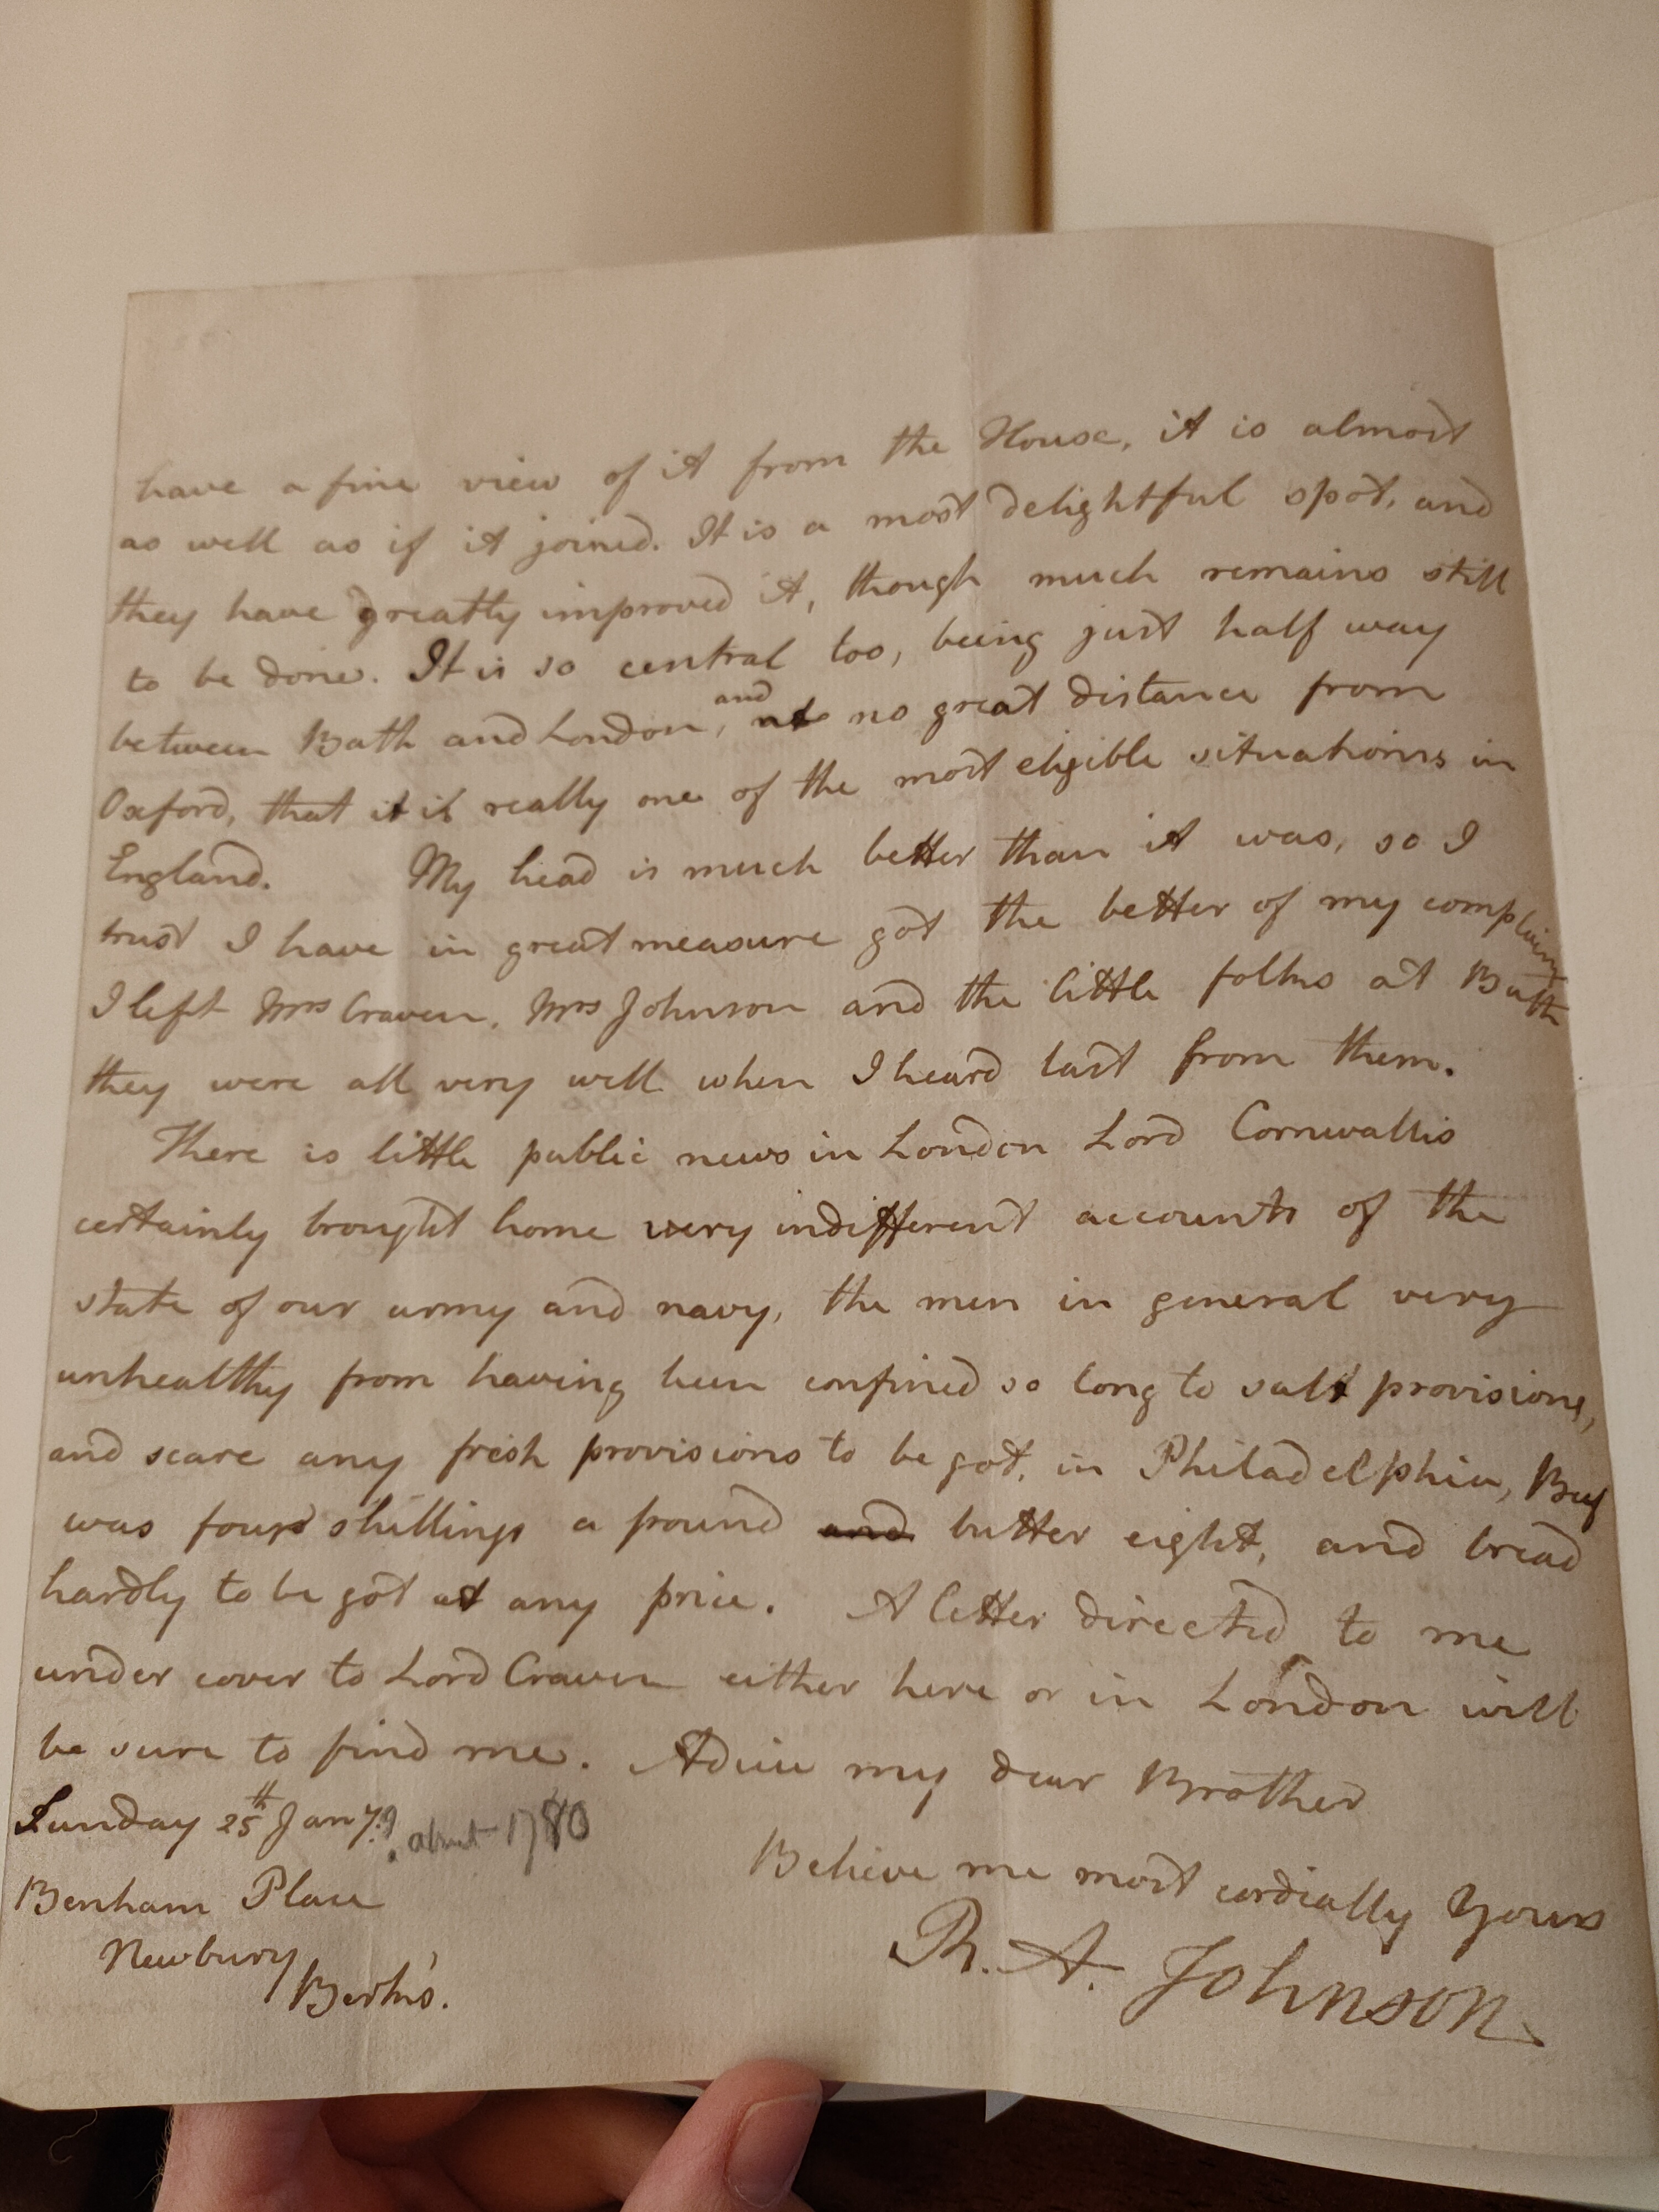 have a fine view of it from the House, it is almost
as well as if it joined. It is a most delightful spot, and
they have greatly improved it, though much remains still
to be done. It is so central too, being just half way
and
between Bath and London, no great distance from
Oxford, that it is really one of the most eligible situations in
England. My head is much better than it was, so I
trust I have in great measure got the better of my complaint
I left Mrs Craven, Mrs Johnson and the little folks at Bath
they were all very well when I heard last from them.
There is little public news in London Lord Cornwallis
certainly brought home very indifferent accounts of the
state of our army and navy, the men in general very
unhealthy from having been confined so long to salt provisions,
and scare any fresh provisions to be got, in Philadelphia, Beef
was four shillings a pound and butter eight, and bread
hardly to be got at any price. A letter directed to me
under cover to Lord Craven either here or in London will
be sure to find me. Adieu my dear Brother
Sunday 25th Jany. about 1780
Believe me most cordially Yours
Benham Place
R. A. Johnson
Newbury
Berks.